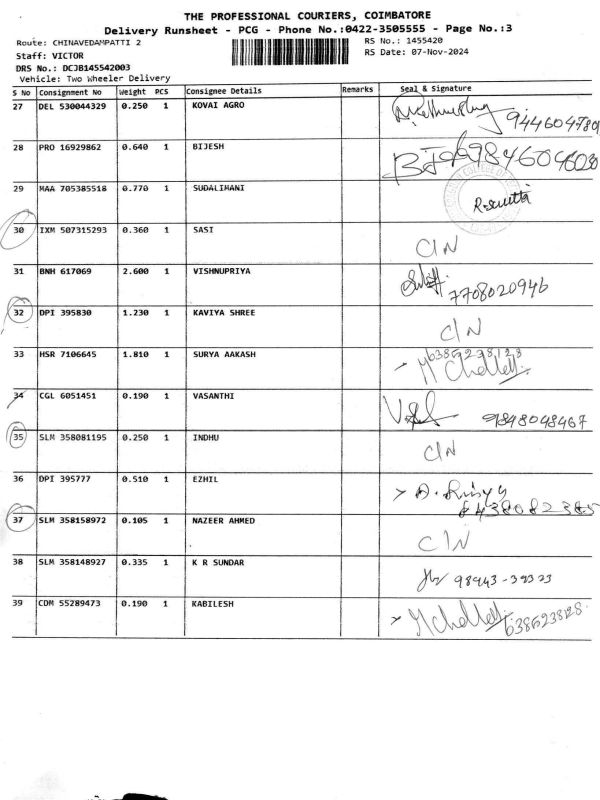 THE PROFESSIONAL COURIERS, COIMBATORE
Delivery Runsheet - PCG - Phone No.:0422-3505555 - Page No.:3
Route: CHINAVEDAMPATTI 2 RS No.: 1455420
Staff: VICTOR RS Date: 07-Nov-2024
DRS No.: DCJB145542003
Vehicle: Two Wheeler Delivery
S No Consignment No Weight PCS Consignee Details Remarks Seal & Signature
27 DEL 530044329 0.250 1 KOVAI AGRO
28 PRO 16929862 0.640 1 BIJESH
29 MAA 705385518 0.770 1 SUDALIMANI
30 IXM 507315293 0.360 1 SASI C/N
31 BNH 617069 2.600 1 VISHNUPRIYA 7708020946
32 DPI 395830 1.230 1 KAVIYA SHREE C/N
33 HSR 7106645 1.810 1 SURYA AAKASH
34 CGL 6051451 0.190 1 VASANTHI 9848048467
35 SLM 358081195 0.250 1 INDHU C/N
36 DPI 395777 0.510 1 EZHIL 8438082385
37 SLM 358158972 0.105 1 NAZEER AHMED C/N
38 SLM 358148927 0.335 1 K R SUNDAR
39 CDM 55289473 0.190 1 KABILESH